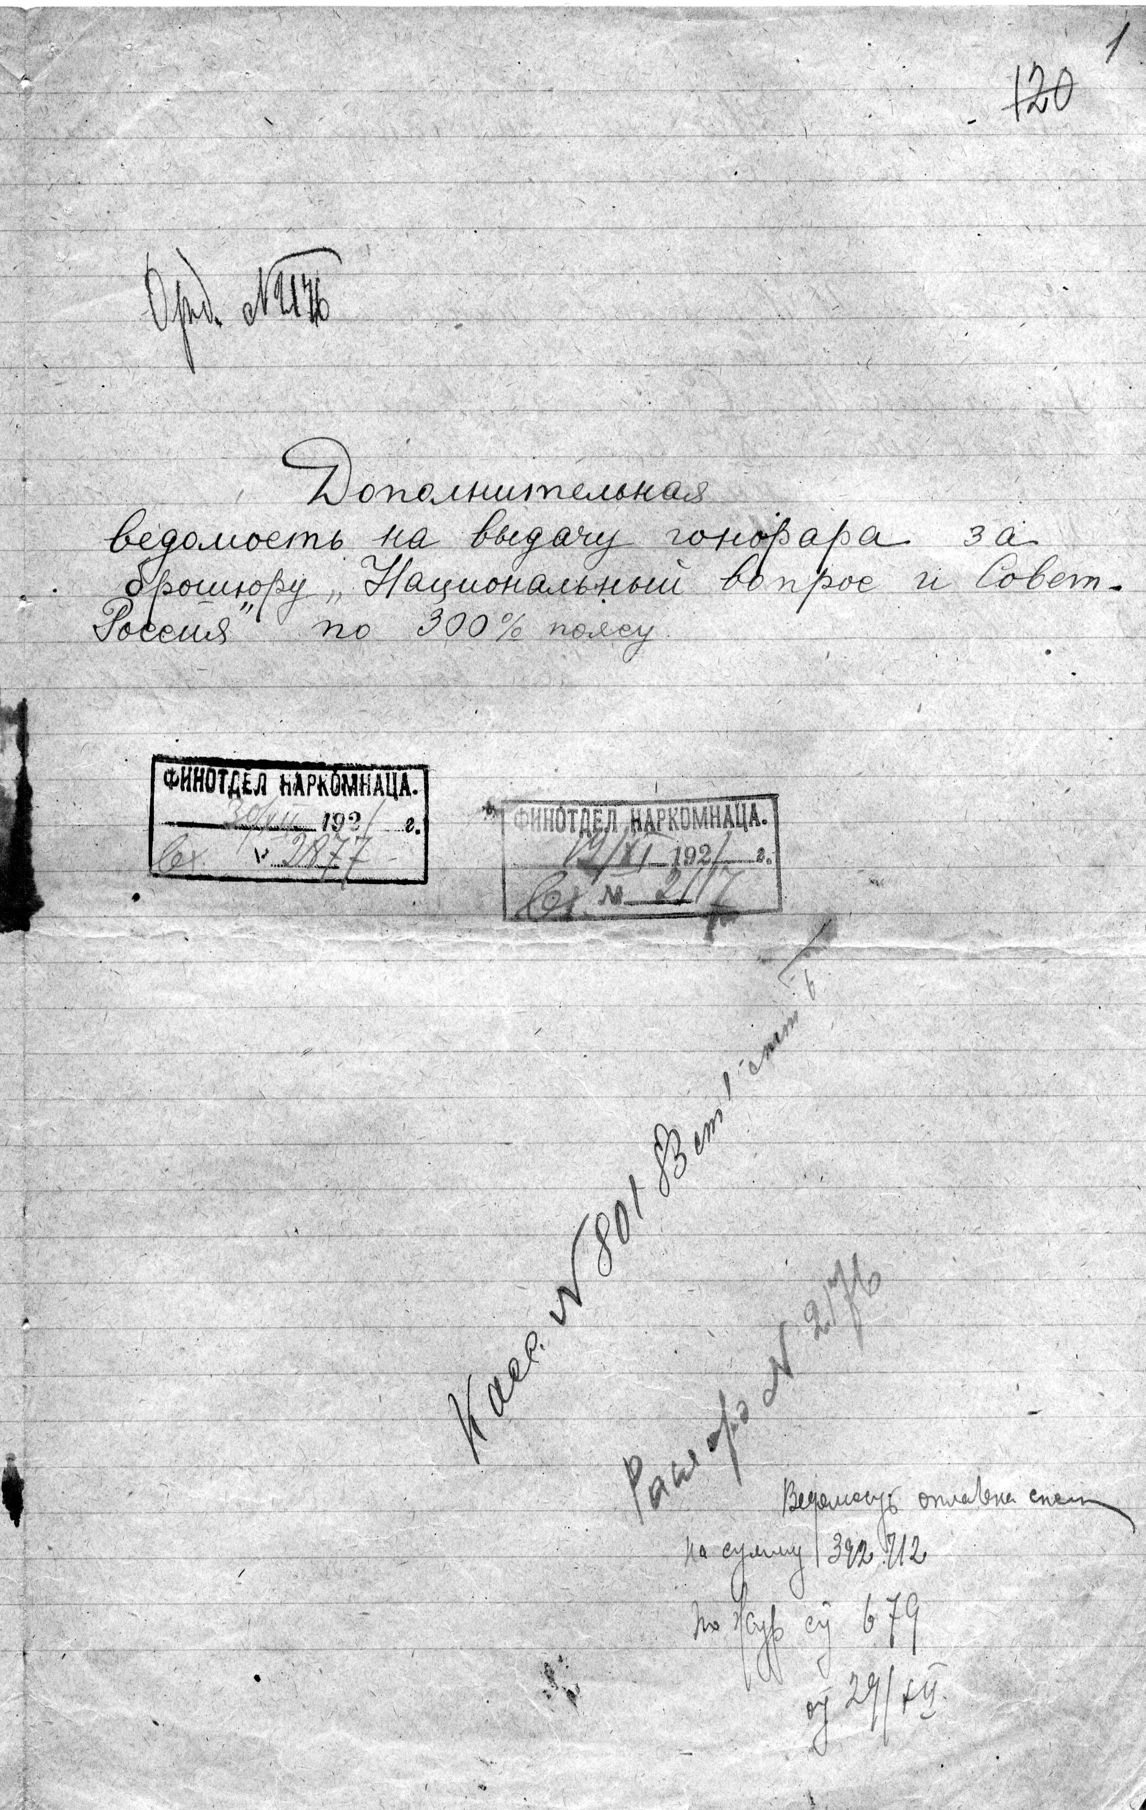 1
120
Орд. № 2176
Дополнительная
ведомость на выдачу гонорара за
брошюру „Национальный вопрос и Совет.
Россия" по 300% поясу
ФИНОТДЕЛ НАРКОМНАЦА.
30/XII 1921 г.
Вх. № 2877
ФИНОТДЕЛ НАРКОМНАЦА.
19/XI 1921 г.
Вх. № 2117
Касс. № 801
орд № 2176
Ведомость
на сумму 392.712
по жур 679
29/XII.